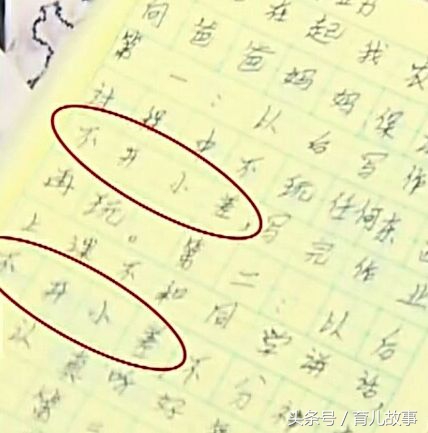 在起我发
向爸爸妈妈保
第一:以后写作
程中不玩任何东西
不开小差,写完作业
再玩。第二:以后
上课不和同学讲话,
不开小差,不分
认真听好
第
头条号/育儿故事